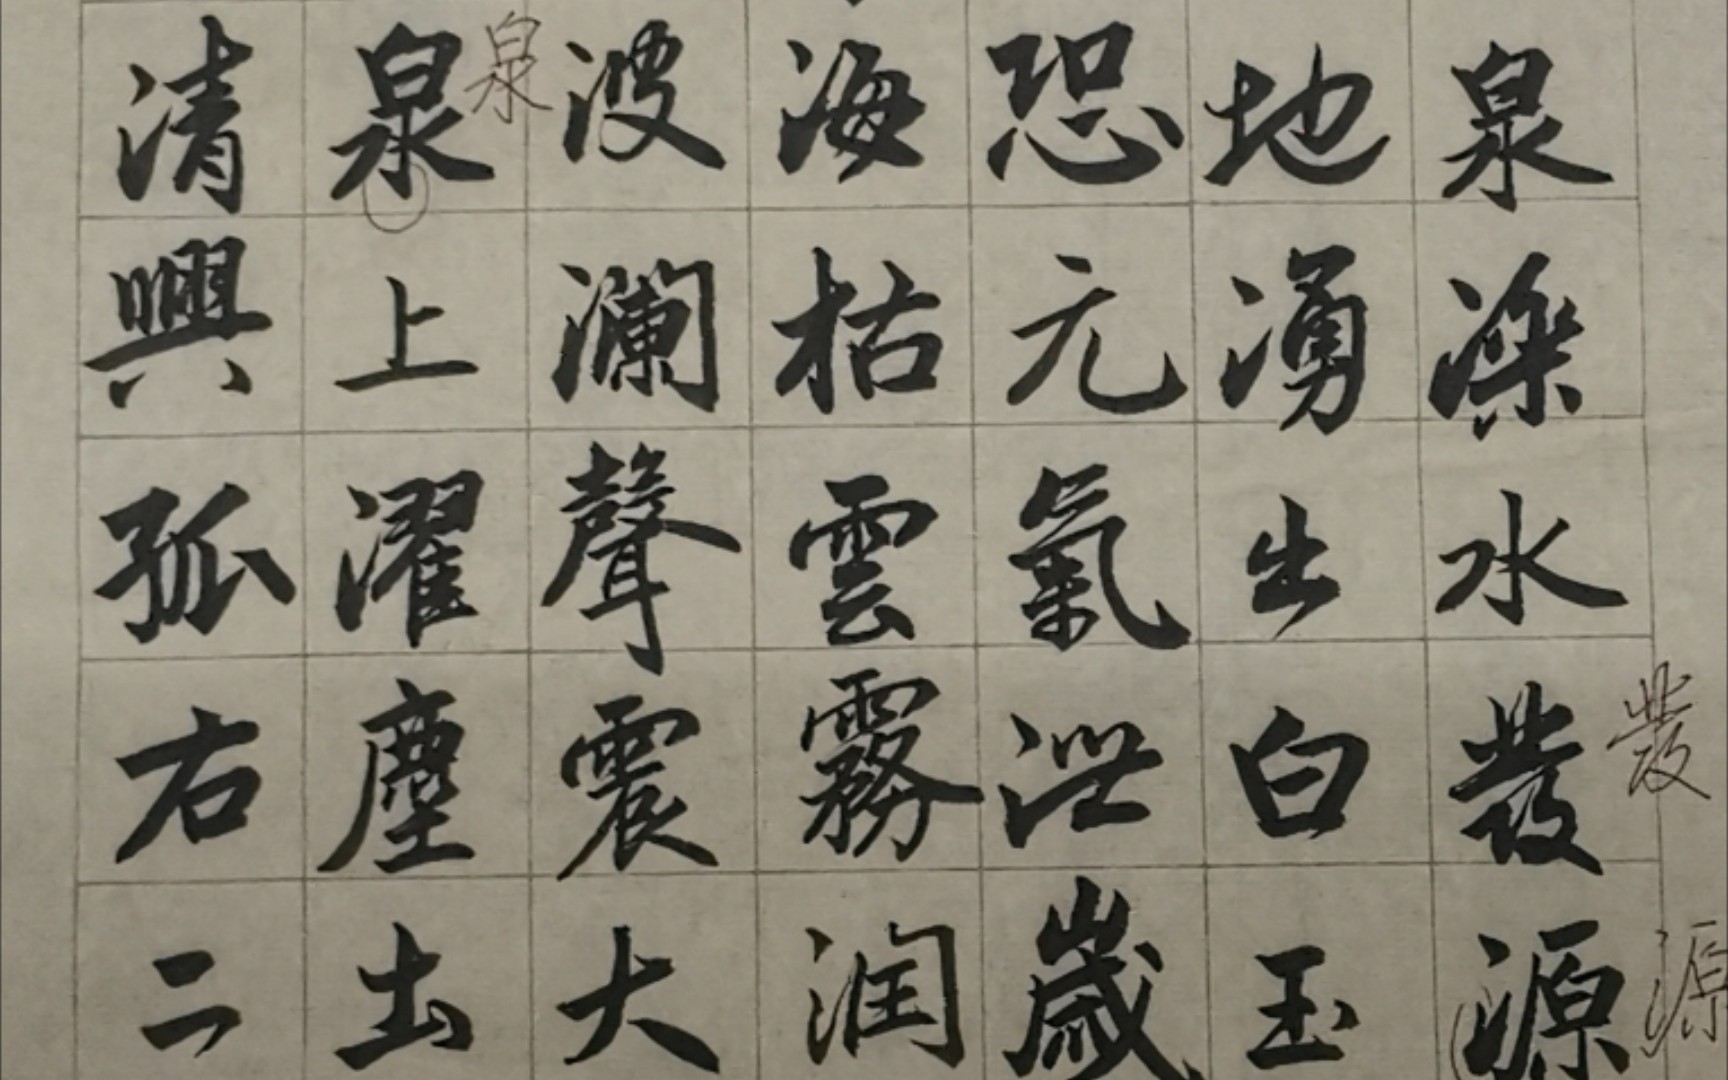 泉濼水發源
地湧出白玉
恐元氣泄歲
海枯雲霧润
波瀾聲震大
泉上濯塵土
清興孤右二
發
源
泉